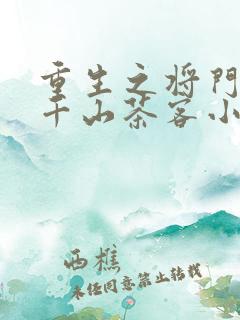 重生之将门
千山茶客小
西樵
未经同意禁止转载